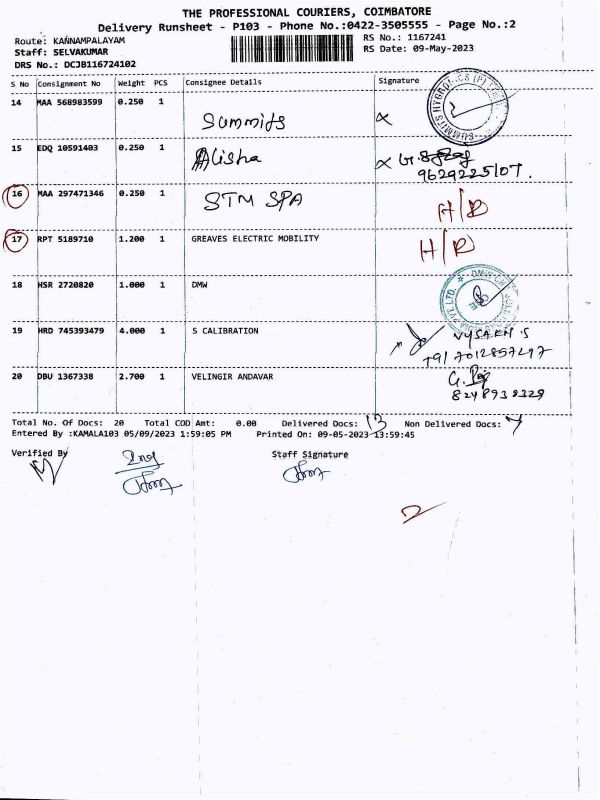 THE PROFESSIONAL COURIERS, COIMBATORE
Delivery Runsheet - P103 - Phone No.:0422-3505555 - Page No.:2
Route: KANNAMPALAYAM
RS No.: 1167241
Staff: SELVAKUMAR
RS Date: 09-May-2023
DRS No.: DCJB116724102
S No Consignment No Weight PCS Consignee Details Signature
14 MAA 568983599 0.250 1 Summits
15 EDQ 10591403 0.250 1 Alisha G.
9629225107.
16 MAA 297471346 0.250 1 STM SPA H/R
17 RPT 5189710 1.200 1 GREAVES ELECTRIC MOBILITY H/R
18 HSR 2720820 1.000 1 DMW
19 HRD 745393479 4.000 1 S CALIBRATION VYSAKH.S
+917012857297
20 DBU 1367338 2.700 1 VELINGIR ANDAVAR G.
8248938329
Total No. Of Docs: 20 Total COD Amt: 0.00 Delivered Docs: 13 Non Delivered Docs: 7
Entered By :KAMALA103 05/09/2023 1:59:05 PM Printed On: 09-05-2023 13:59:45
Verified By Staff Signature
2